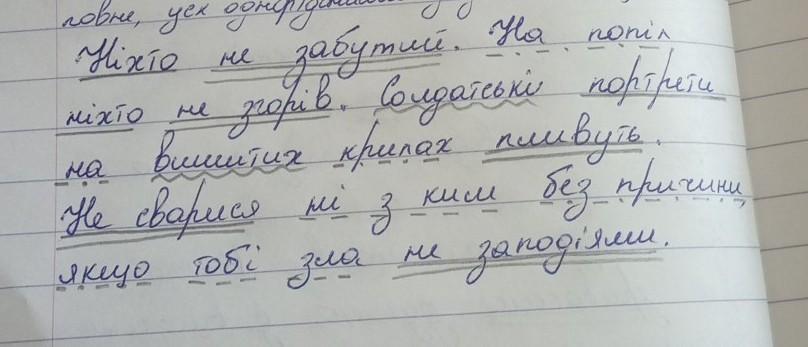 повне, усе
Ніхто не забутий. На попіл
ніхто не згорів. Солдатські портрети
на вишитих крилах пливуть.
Не сварися ні з ким без причини,
якщо тобі зла не заподіями.